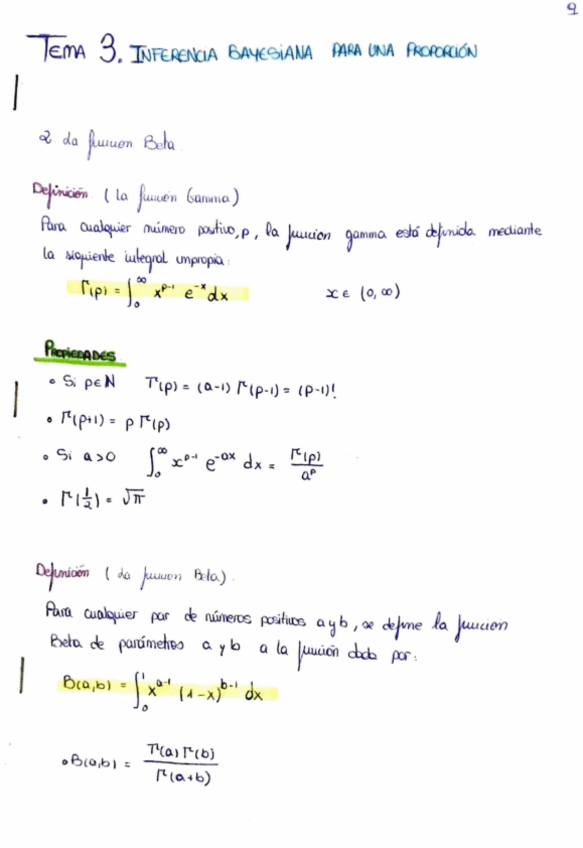 9
TEMA 3. INFERENCIA BAYESIANA PARA UNA PROPORCIÓN
2 La función Beta.
Definición (La función Gamma)
Para cualquier número positivo, p, la función gamma está definida mediante
la siguiente integral impropia:
Γ(p) = ∫₀^∞ x^{p-1} e^{-x} dx x ∈ (0, ∞)
PROPIEDADES
• Si p∈N Γ(p) = (a-1) Γ(p-1) = (p-1)!
• Γ(p+1) = p Γ(p)
• Si a>0 ∫₀^∞ x^{p-1} e^{-ax} dx = Γ(p)/a^p
• Γ(1/2) = √π
Definición (La función Beta).
Para cualquier par de números positivos a y b, se define la función
Beta de parámetros a y b a la función dada por:
B(a,b) = ∫₀^1 x^{a-1} (1-x)^{b-1} dx
• B(a,b) = Γ(a) Γ(b)/Γ(a+b)